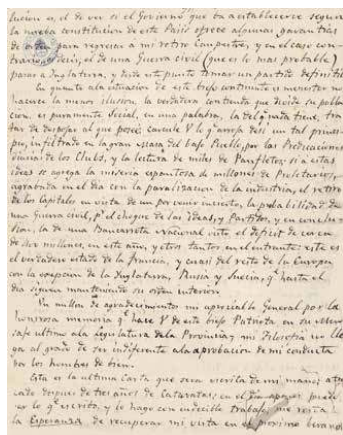 lucion es el de ver si el Gobierno que va a establecerse segun
la nueva constitucion de este Pais ofrece algunas garantias
de orden para regresar a mi retiro Campestre, y en el caso con-
trario, es decir, el de una Guerra civil (que es lo mas probable)
pasar a Ynglaterra, y desde este punto tomar un partido definiti
En quanto a la situacion de este viejo continente es menester no
hacerse la menor ilusion, la verdadera contienda que divide su pobla
cion es puramente Social, en una palabra, la del q.e nada tiene, tra
tar de despojar al que posee; calcule V. lo q.e arroja de si un tal princi-
pio, infiltrado en la gran masa del bajo Pueblo, por las Predicaciones
diarias de los Clubs, y la lectura de miles de Panfletos; si a estas
ideas se agrega la miseria espantosa de millones de Proletarios,
agravada en el dia con la paralizacion de la industria, el retiro
de los Capitales en vista de un porvenir incierto, la probabilidad de
una Guerra civil, p.r el choque de las ideas, y Partidos, y en conclu-
sion, la de una Bancarrota Nacional visto el deficit de cerca
de millones, en este año, y otros tantos en el entrante: este es
el verdadero estado de la Francia, y cuasi del resto de la Europa
con la esepcion de la Ynglaterra, Rusia y Suecia, q.e hasta el
dia siguen manteniendo su orden interior.
Un millon de agradecimientos mi apreciable General por la
honrosa memoria q.e hace V. de este viejo Patriota en su Men
saje ultimo a la Legislatura de la Provincia; mi Filosofia no lle
ga al grado de ser indiferente a la aprobacion de mi conducta
por los hombres de bien.
Esta es la ultima Carta que sera escrita de mi mano; ata
cado despues de tres años de Cataratas; en el dia apenas puedo
ver lo q.e escribo, y lo hago con indecible trabajo; me resta
la Esperanza de recuperar mi vista en el proximo verano